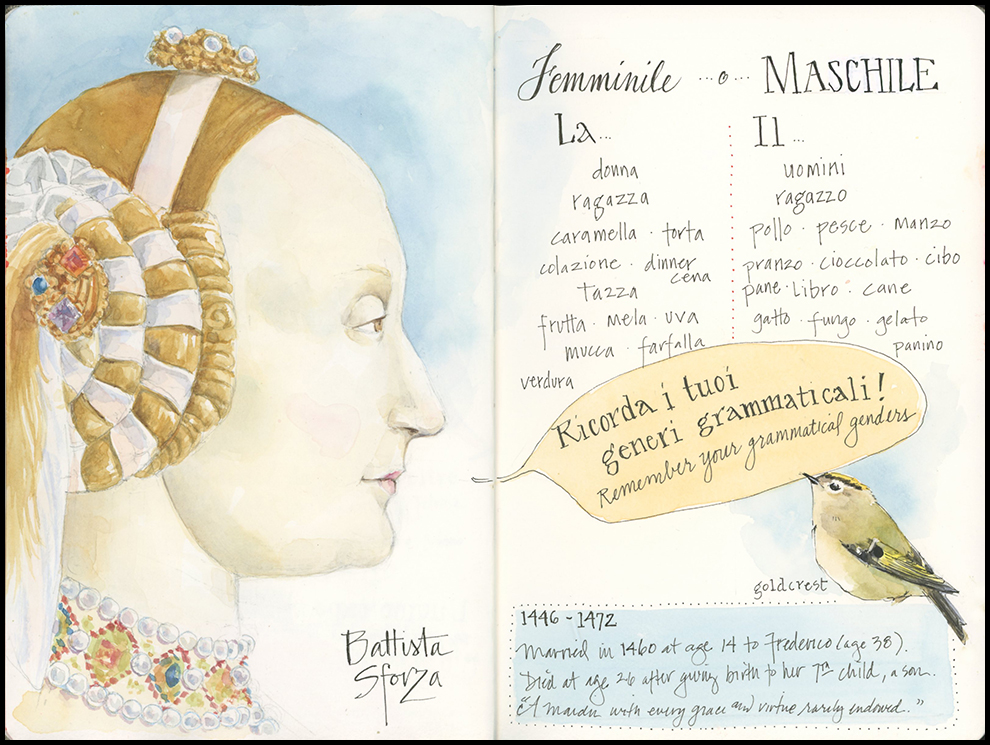 Battista
Sforza
Femminile ... o ... MASCHILE
La...
donna
ragazza
caramella · torta
colazione · dinner
cena
tazza
frutta · mela · uva
mucca · farfalla
verdura
Il ...
uomini
ragazzo
pollo · pesce · manzo
pranzo · cioccolato · cibo
pane · libro · cane
gatto · fungo · gelato
panino
Ricorda i tuoi
generi grammaticali!
Remember your grammatical genders
goldcrest
1446 - 1472
Married in 1460 at age 14 to Frederico (age 38).
Died at age 26 after giving birth to her 7th child, a son.
"A maiden with every grace and virtue rarely endowed."